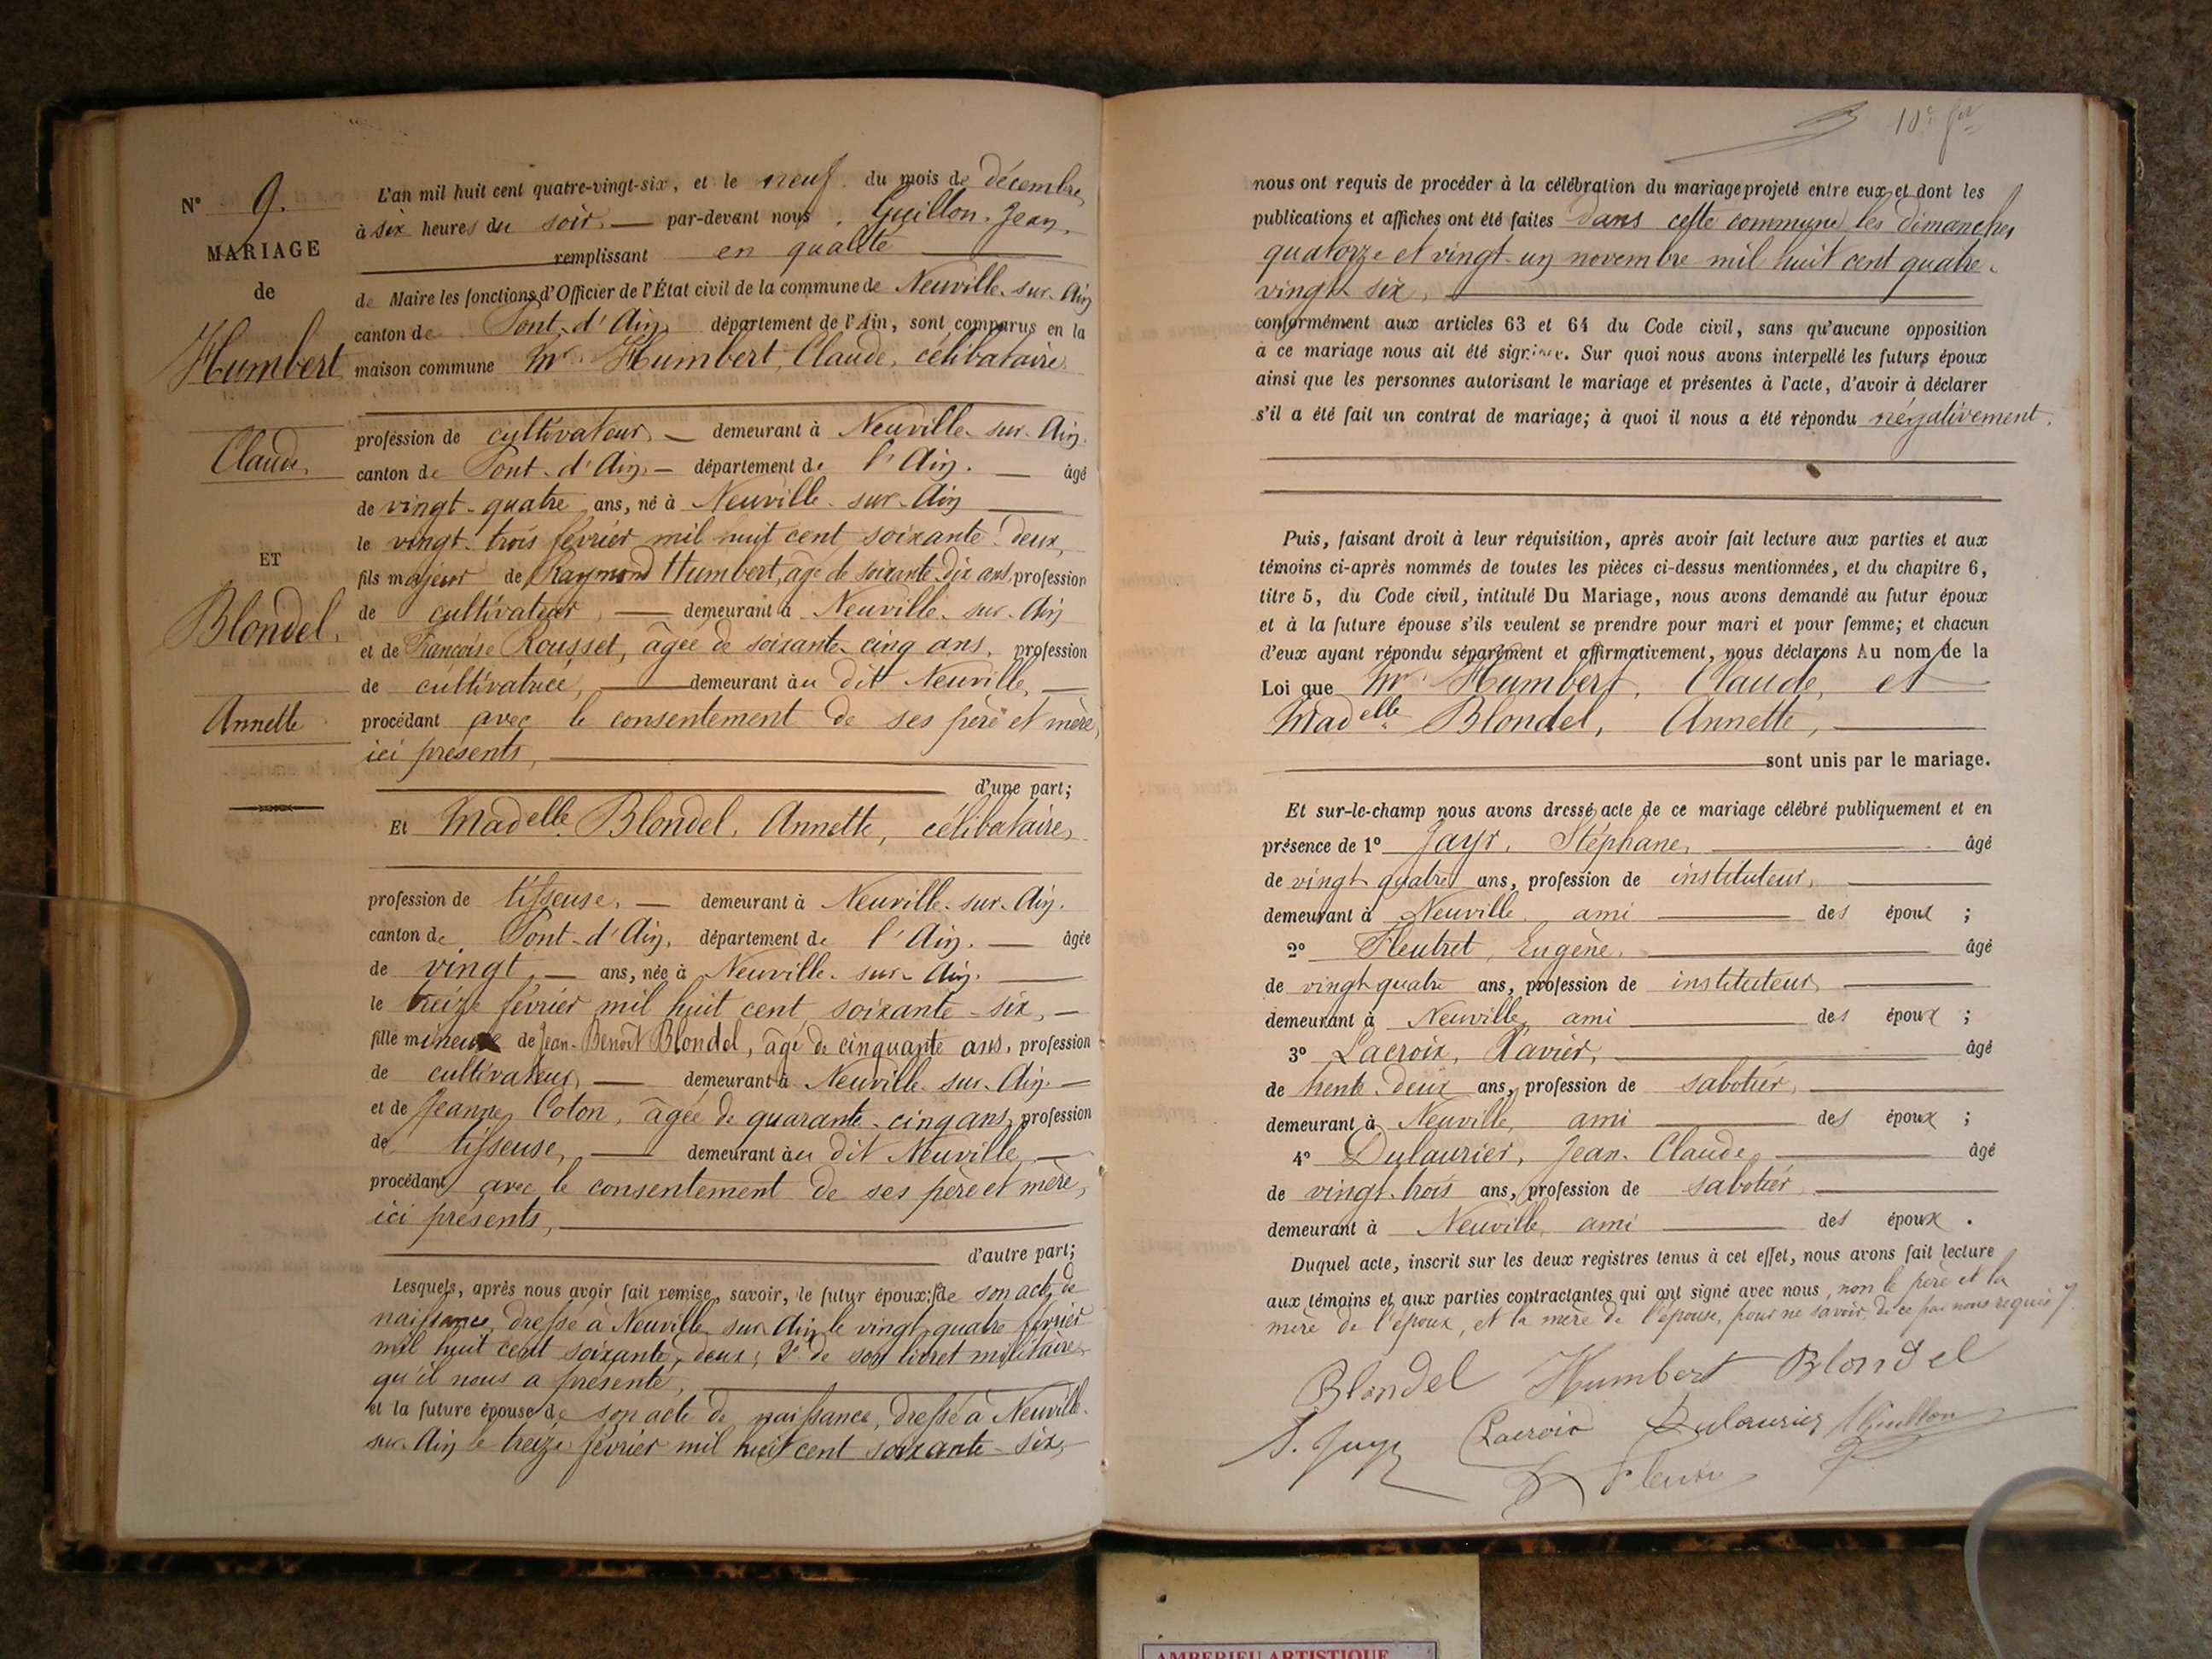 N° 9.
MARIAGE
de
Humbert
Claude
ET
Blondel,
Annette
L'an mil huit cent quatre-vingt-six, et le neuf du mois de décembre,
à six heures du soir, par-devant nous, Guillon, Jean,
remplissant en qualité
de Maire les fonctions d'Officier de l'État civil de la commune de Neuville-sur-Ain
canton de Pont-d'Ain, département de l'Ain, sont comparus en la
maison commune Mr. Humbert, Claude, célibataire,
profession de cultivateur, demeurant à Neuville-sur-Ain,
canton de Pont-d'Ain, département de l'Ain. âgé
de vingt-quatre ans, né à Neuville-sur-Ain
le vingt-trois février mil huit cent soixante-deux,
fils majeur de Raymond Humbert, âgé de soixante-dix ans, profession
de cultivateur, demeurant à Neuville-sur-Ain
et de Françoise Rousset, âgée de soixante-cinq ans, profession
de cultivatrice, demeurant au dit Neuville,
procédant avec le consentement de ses père et mère,
ici présents,
d'une part;
Et Madelle Blondel, Annette, célibataire,
profession de tisseuse, demeurant à Neuville-sur-Ain,
canton de Pont-d'Ain, département de l'Ain. âgée
de vingt, ans, née à Neuville-sur-Ain,
le treize février mil huit cent soixante-six,
fille mineure de Jean-Benoît Blondel, âgé de cinquante ans, profession
de cultivateur, demeurant à Neuville-sur-Ain
et de Jeanne Coton, âgée de quarante-cinq ans, profession
de tisseuse, demeurant au dit Neuville,
procédant avec le consentement de ses père et mère,
ici présents,
d'autre part;
Lesquels, après nous avoir fait remise, savoir, le futur époux: de son acte de
naissance, dressé à Neuville-sur-Ain le vingt-quatre février
mil huit cent soixante-deux; 2° de son livret militaire
qu'il nous a présenté,
et la future épouse de son acte de naissance, dressé à Neuville-
sur-Ain le treize février mil huit cent soixante-six,
10e
nous ont requis de procéder à la célébration du mariage projeté entre eux et dont les
publications et affiches ont été faites dans cette commune les dimanches
quatorze et vingt-un novembre mil huit cent quatre-
vingt-six,
conformément aux articles 63 et 64 du Code civil, sans qu'aucune opposition
à ce mariage nous ait été signifiée. Sur quoi nous avons interpellé les futurs époux
ainsi que les personnes autorisant le mariage et présentes à l'acte, d'avoir à déclarer
s'il a été fait un contrat de mariage; à quoi il nous a été répondu négativement.
Puis, faisant droit à leur réquisition, après avoir fait lecture aux parties et aux
témoins ci-après nommés de toutes les pièces ci-dessus mentionnées, et du chapitre 6,
titre 5, du Code civil, intitulé Du Mariage, nous avons demandé au futur époux
et à la future épouse s'ils veulent se prendre pour mari et pour femme; et chacun
d'eux ayant répondu séparément et affirmativement, nous déclarons Au nom de la
Loi que Mr. Humbert, Claude, et
Madelle Blondel, Annette,
sont unis par le mariage.
Et sur-le-champ nous avons dressé acte de ce mariage célébré publiquement et en
présence de 1° Jayr, Stéphane, âgé
de vingt-quatre ans, profession de instituteur,
demeurant à Neuville, ami des époux;
2° Fleutret, Eugène, âgé
de vingt-quatre ans, profession de instituteur,
demeurant à Neuville, ami des époux;
3° Lacroix, Xavier, âgé
de trente-deux ans, profession de sabotier,
demeurant à Neuville, ami des époux;
4° Dulaurier, Jean-Claude, âgé
de vingt-trois ans, profession de sabotier
demeurant à Neuville, ami des époux.
Duquel acte, inscrit sur les deux registres tenus à cet effet, nous avons fait lecture
aux témoins et aux parties contractantes qui ont signé avec nous, non le père et la
mère de l'époux, et la mère de l'épouse, pour ne savoir, de ce par nous requis
Blondel Humbert Blondel
S. Jayr Lacroix Dulaurier Guillon
AMBERIEU ARTISTIQUE